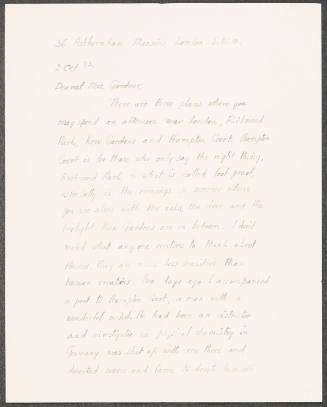 36 Ashburnham Mansions London. S.W.10.
2 Oct. '12.
Dearest Mrs. Gardner,
There are three places where you
may spend an afternoon near London, Richmond
Park, Kew Gardens and Hampton Court. Hampton
Court is for those who only say the right thing,
Richmond Park is what is called fool proof,
specially in the evenings in summer when
you are alone with the oaks, the deer and the
twilight. Kew Gardens are in between. I don't
mind what anyone ventures to think about
flowers, they are less sensitive than
human creations. Two days ago I accompanied
a poet to Hampton Court, a man with a
wonderful mind. He had been an instructor
and investigator in physical chemistry in
Germany, was shut up with one there and
devoted several and came to devote himself